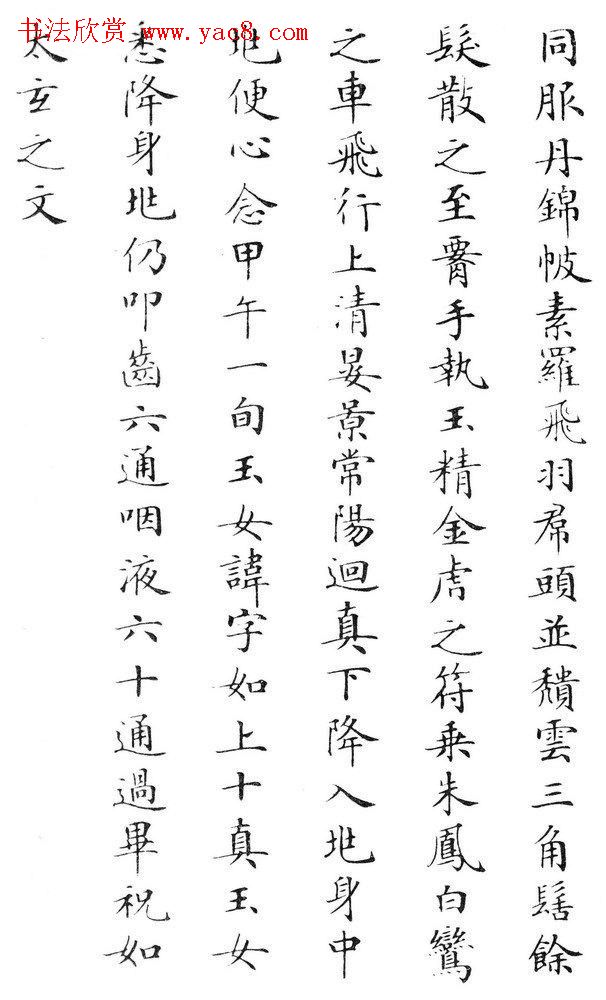 书法欣赏 www.yac8.com
同服丹錦帔素羅飛羽帬頭並頹雲三角髻餘
髮散之至署手執玉精金虎之符乗朱鳳白鸞
之車飛行上清晏景常陽迴真下降入兆身中
兆便心念甲午一旬玉女諱字如上十真玉女
悉降身兆仍叩齒六通咽液六十通過畢祝如
太玄之文